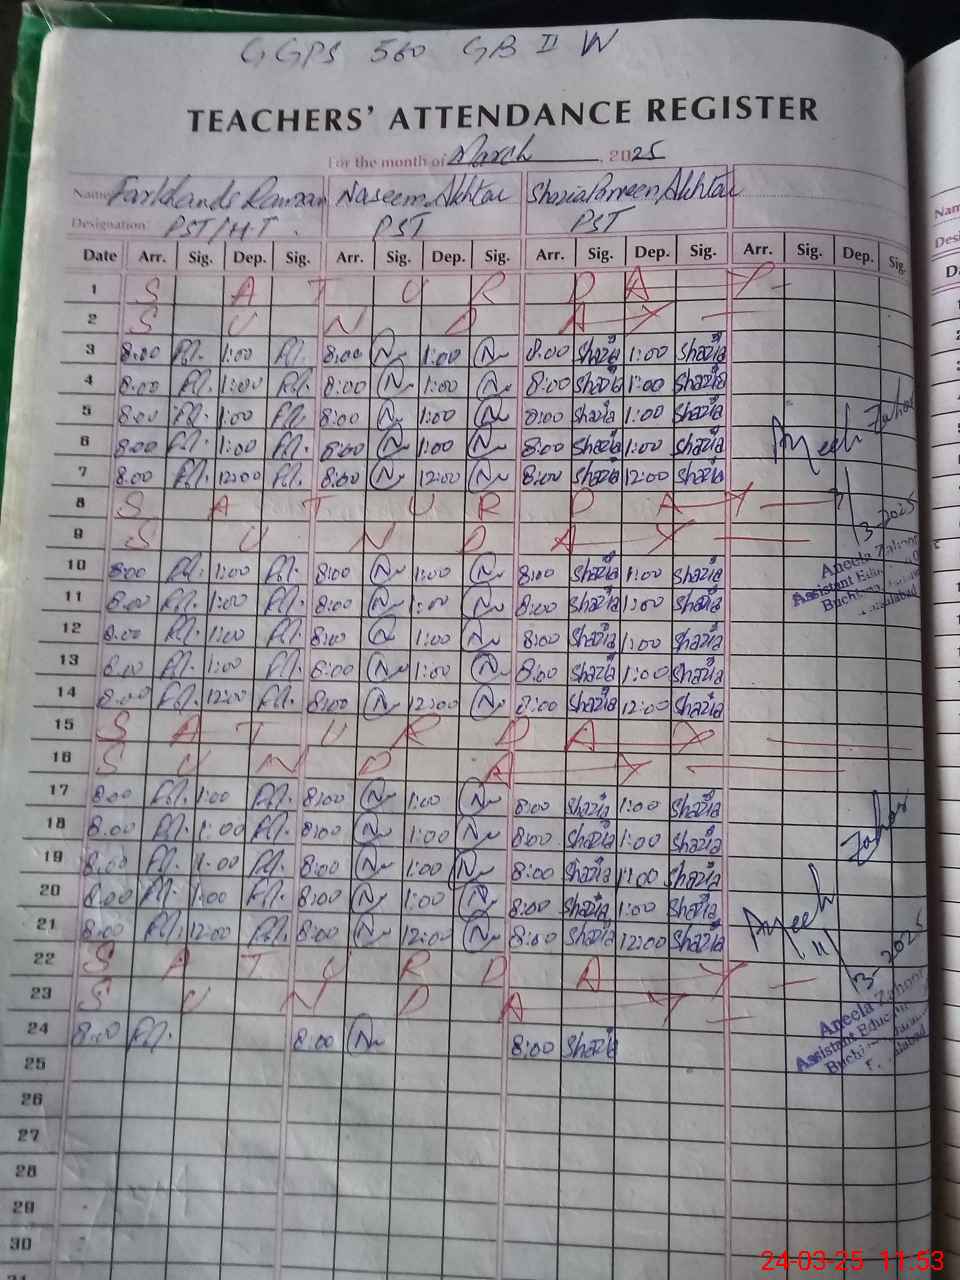 GGPS 560 GB II W
TEACHERS' ATTENDANCE REGISTER
For the month of March, 2025
Name Naseem Akhtar Shazia Parveen Akhtar
Designation PST/HT. PST PST
Date Arr. Sig. Dep. Sig. Arr. Sig. Dep. Sig. Arr. Sig. Dep. Sig. Arr. Sig. Dep. Sig.
1 S A T U R D A Y
2 S U N D A Y
3 8:00 1:00 8:00 N 1:00 N 8:00 Shazia 1:00 Shazia
4 8:00 1:00 8:00 N 1:00 N 8:00 Shazia 1:00 Shazia
5 8:00 1:00 8:00 N 1:00 N 8:00 Shazia 1:00 Shazia
6 8:00 1:00 8:00 N 1:00 N 8:00 Shazia 1:00 Shazia
7 8:00 12:00 8:00 N 12:00 N 8:00 Shazia 12:00 Shazia
8 S A T U R D A Y
9 S U N D A Y
10 8:00 1:00 8:00 N 1:00 N 8:00 Shazia 1:00 Shazia
11 8:00 1:00 8:00 N 1:00 N 8:00 Shazia 1:00 Shazia
12 8:00 1:00 8:00 N 1:00 N 8:00 Shazia 1:00 Shazia
13 8:00 1:00 8:00 N 1:00 N 8:00 Shazia 1:00 Shazia
14 8:00 12:00 8:00 N 12:00 N 8:00 Shazia 12:00 Shazia
15 S A T U R D A Y
16 S U N D A Y
17 8:00 1:00 8:00 N 1:00 N 8:00 Shazia 1:00 Shazia
18 8:00 1:00 8:00 N 1:00 N 8:00 Shazia 1:00 Shazia
19 8:00 1:00 8:00 N 1:00 N 8:00 Shazia 1:00 Shazia
20 8:00 1:00 8:00 N 1:00 N 8:00 Shazia 1:00 Shazia
21 8:00 12:00 8:00 N 12:00 N 8:00 Shazia 12:00 Shazia
22 S A T U R D A Y
23 S U N D A Y
24 8:00 8:00 N 8:00 Shazia
25
26
27
28
29
30
Zahoor
3-2025
Aneela Zahoor
Assistant Educ
Zahoor
11/3 2025
Aneela Zahoor
Assistant Educ
24-03-25 11:53